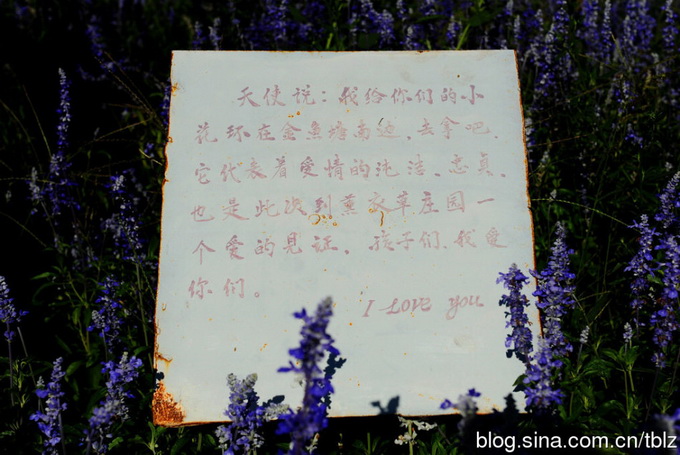 天使说：我给你们的小
花环在金鱼塘南边，去拿吧，
它代表着爱情的纯洁、忠贞，
也是此次到薰衣草庄园一
个爱的见证，孩子们，我爱
你们。
I Love you
blog.sina.com.cn/tblz